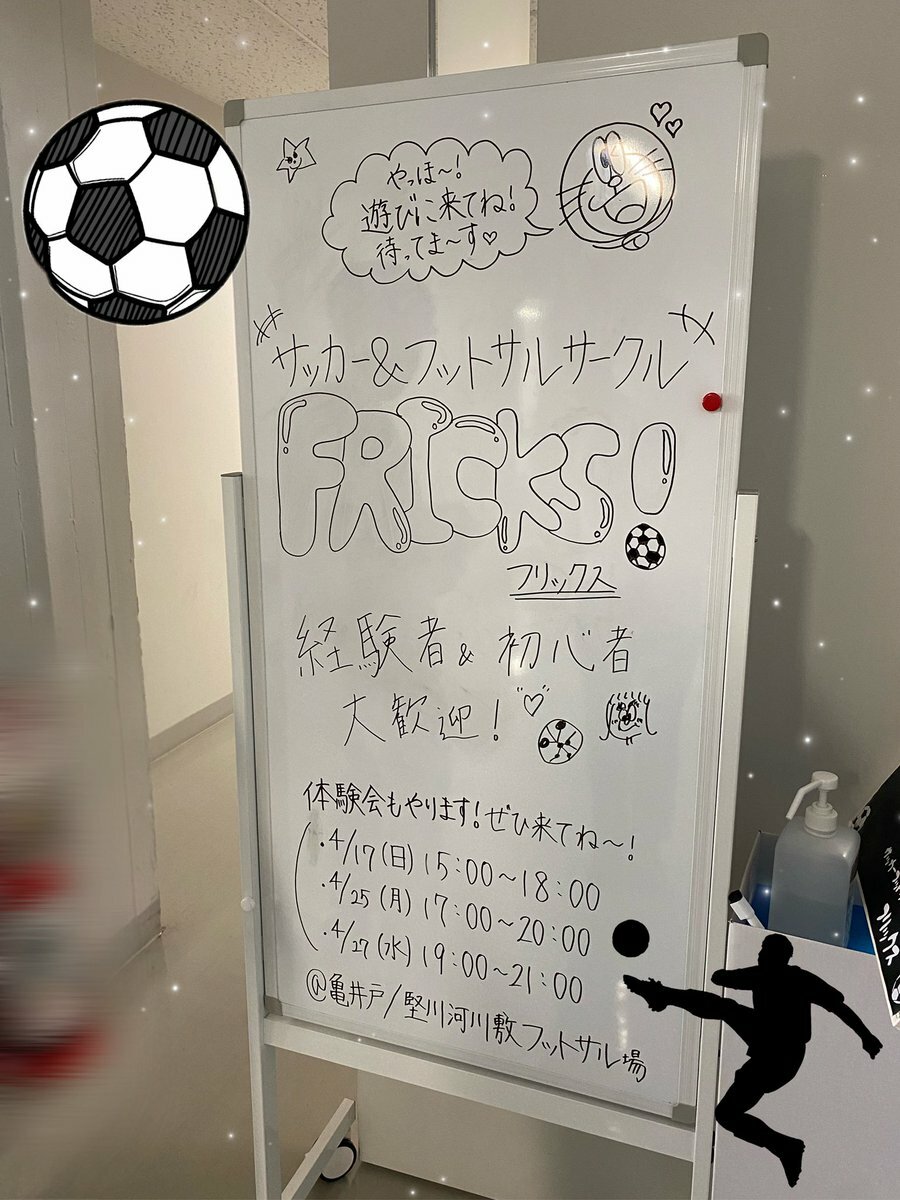 やっほ〜!
遊びに来てね!
待ってま〜す♡
サッカー&フットサルサークル
FRICKS!
フリックス
経験者&初心者
大歓迎!
体験会もやります!ぜひ来てね〜!
・4/17(日)15:00〜18:00
・4/25(月)17:00〜20:00
・4/27(水)19:00〜21:00
@亀井戸/竪川河川敷フットサル場